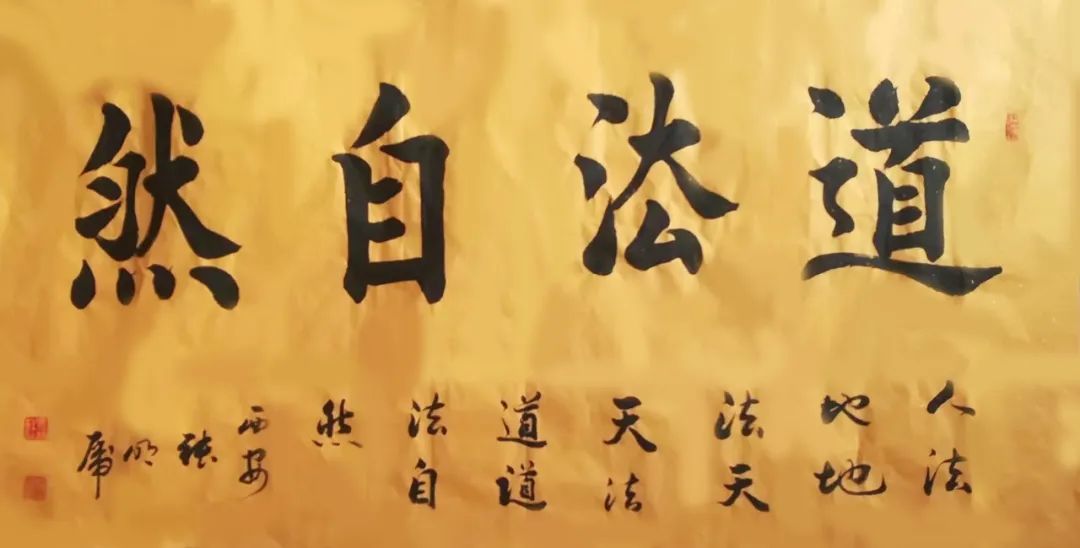 道法自然
人法
地地
法天
天法
道道
法自
然
西安
张
明